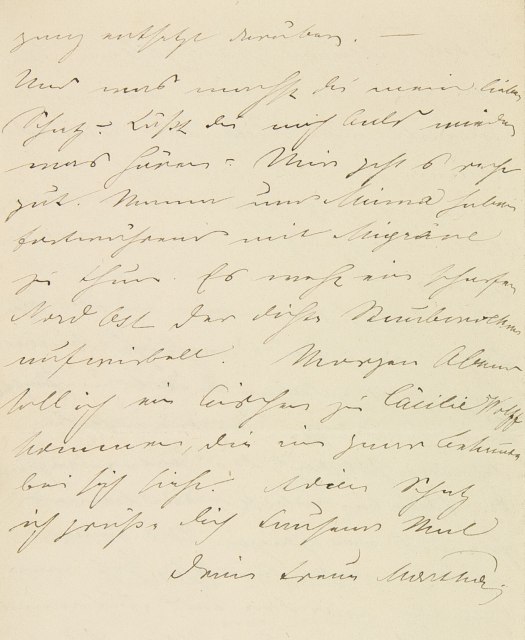 ganz entsetzt darüber. —
Und was machst du mein lieber
Schatz? Läßt du mich bald wieder
was hören? Mir geht es recht
gut. Mama und Minna haben
fortwährend mit Migräne
zu thun. Es weht ein scharfer
Nord Ost der dichte Staubwolken
aufwirbelt. Morgen Abend
soll ich ein bischen zu Cäcilie Wolff
kommen, die ein paar Bekannte
bei sich sieht. Adieu Schatz
ich grüße dich tausend Mal
Deine treue Martha